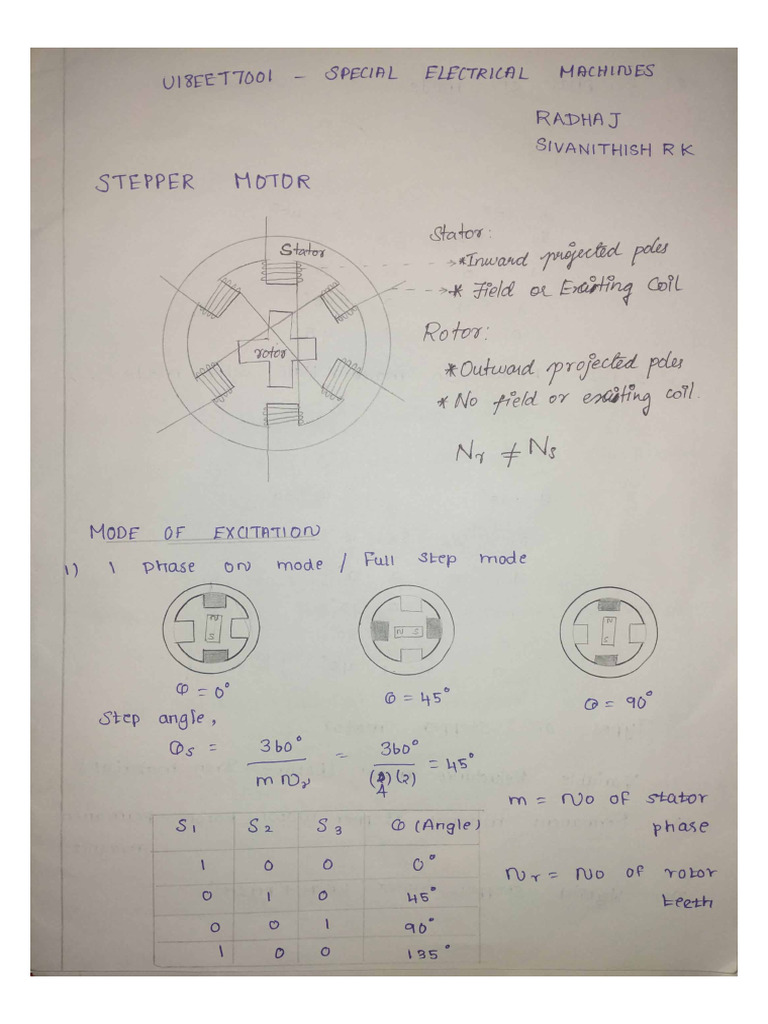 U18EET7001 - SPECIAL ELECTRICAL MACHINES
RADHA J
SIVANITHISH R K
STEPPER MOTOR
Stator
rotor
Stator:
* Inward projected poles
* Field or Exciting Coil
Rotor:
* Outward projected poles
* No field or exciting coil.
Nr ≠ Ns
MODE OF EXCITATION
1) 1 phase on mode / Full step mode
N S
N S
N S
θ = 0°
θ = 45°
θ = 90°
Step angle,
θs = 360° / m Nr = 360° / (4)(2) = 45°
m = No of stator phase
Nr = No of rotor teeth
S1 S2 S3 θ (Angle)
1 0 0 0°
0 1 0 45°
0 0 1 90°
1 0 0 135°